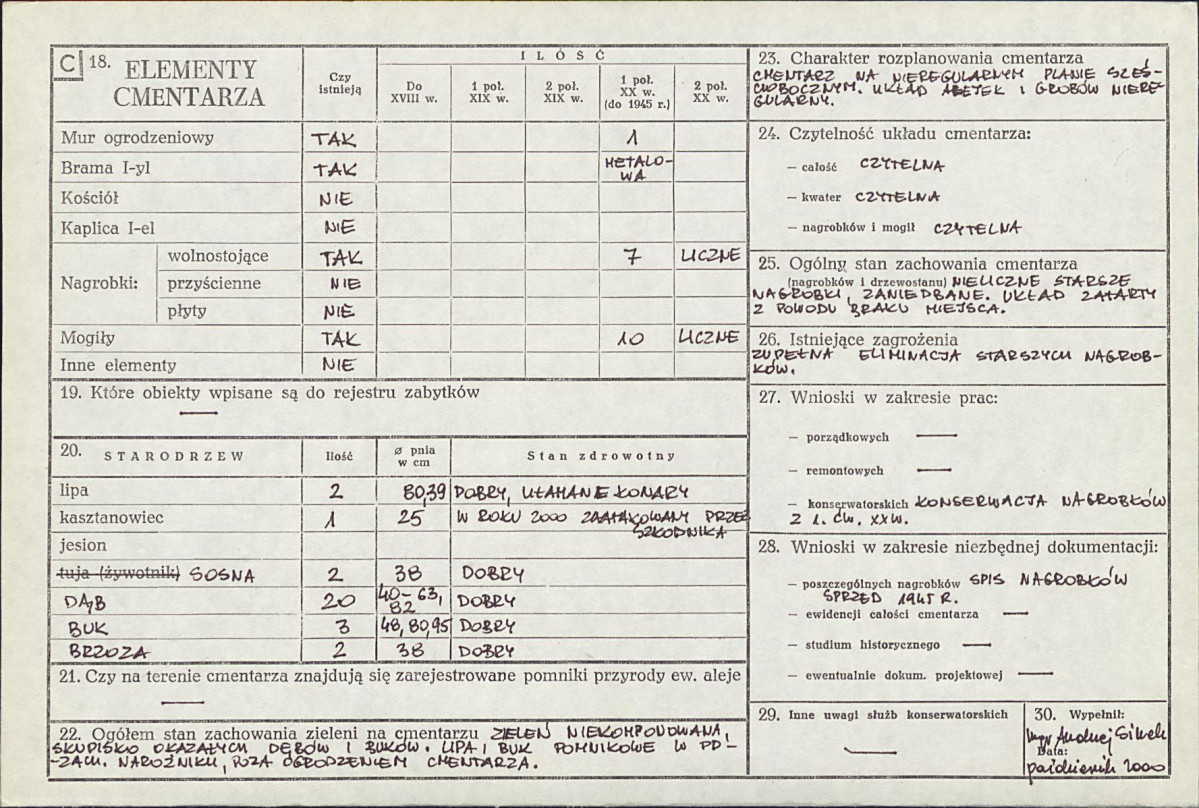 C 18. ELEMENTY CMENTARZA
Czy istnieją
ILOŚĆ
Do XVIII w.
1 poł. XIX w.
2 poł. XIX w.
1 poł. XX w. (do 1945 r.)
2 poł. XX w.
Mur ogrodzeniowy TAK 1
Brama I-yl TAK METALO-
WA
Kościół NIE
Kaplica I-el NIE
Nagrobki:
wolnostojące TAK 7 LICZNE
przyścienne NIE
płyty NIE
Mogiły TAK 10 LICZNE
Inne elementy NIE
19. Które obiekty wpisane są do rejestru zabytków
—
20. STARODRZEW Ilość ø pnia w cm Stan zdrowotny
lipa 2 80,39 DOBRY, UŁAMANE KONARY
kasztanowiec 1 25 W ROKU 2000 ZAATAKOWANY PRZEZ
SZKODNIKA
jesion
tuja (żywotnik) SOSNA 2 38 DOBRY
DĄB 20 40-63, 82 DOBRY
BUK 3 48,80,95 DOBRY
BRZOZA 2 38 DOBRY
21. Czy na terenie cmentarza znajdują się zarejestrowane pomniki przyrody ew. aleje
—
22. Ogółem stan zachowania zieleni na cmentarzu ZIELEŃ NIEKOMPONOWANA,
SKUPISKO OKAZAŁYCH DĘBÓW I BUKÓW. LIPA I BUK POMNIKOWE W PD-
-ZACH. NAROŻNIKU, POZA OGRODZENIEM CMENTARZA.
23. Charakter rozplanowania cmentarza
CMENTARZ NA NIEREGULARNYM PLANIE SZEŚ-
CIOBOCZNYM. UKŁAD ALEJEK I GROBÓW NIERE-
GULARNY.
24. Czytelność układu cmentarza:
— całość CZYTELNA
— kwater CZYTELNA
— nagrobków i mogił CZYTELNA
25. Ogólny stan zachowania cmentarza
(nagrobków i drzewostanu) NIELICZNE STARSZE
NAGROBKI, ZANIEDBANE. UKŁAD ZATARTY
Z POWODU BRAKU MIEJSCA.
26. Istniejące zagrożenia
ZUPEŁNA ELIMINACJA STARSZYCH NAGROB-
KÓW.
27. Wnioski w zakresie prac:
— porządkowych —
— remontowych —
— konserwatorskich KONSERWACJA NAGROBKÓW
Z 1. ĆW. XX W.
28. Wnioski w zakresie niezbędnej dokumentacji:
— poszczególnych nagrobków SPIS NAGROBKÓW
SPRZED 1945 R.
— ewidencji całości cmentarza —
— studium historycznego —
— ewentualnie dokum. projektowej —
29. Inne uwagi służb konserwatorskich
—
30. Wypełnił:
mgr Andrzej Siwek
Data:
październik 2000